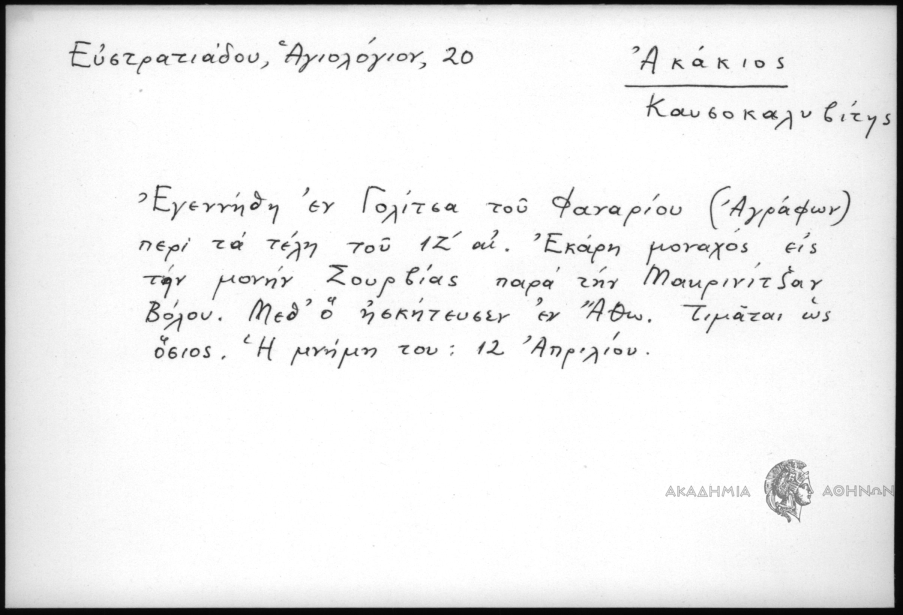 Εὐστρατιάδου, Ἁγιολόγιον, 20
Ἀκάκιος
Καυσοκαλυβίτης
Ἐγεννήθη ἐν Γολίτσα τοῦ Φαναρίου (Ἀγράφων)
περί τά τέλη τοῦ ΙΖ´ αἰ. Ἐκάρη μοναχός εἰς
τήν μονήν Σουρβίας παρά τήν Μακρινίτζαν
Βόλου. Μεθ' ὅ ἠσκήτευσεν ἐν Ἄθω. Τιμᾶται ὡς
ὅσιος. Ἡ μνήμη του: 12 Ἀπριλίου.
ΑΚΑΔΗΜΙΑ ΑΘΗΝΩΝ